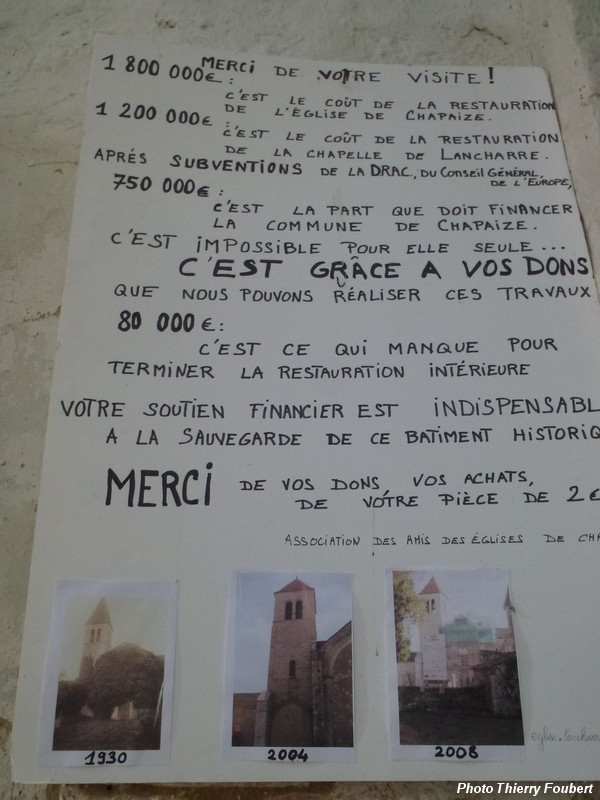 MERCI DE VOTRE VISITE !
1 800 000€ :
C'EST LE COÛT DE LA RESTAURATION
DE L'ÉGLISE DE CHAPAIZE.
1 200 000€ :
C'EST LE COÛT DE LA RESTAURATION
DE LA CHAPELLE DE LANCHARRE.
APRÉS SUBVENTIONS DE LA DRAC, DU CONSEIL GÉNÉRAL,
DE L'EUROPE,
750 000€ :
C'EST LA PART QUE DOIT FINANCER
LA COMMUNE DE CHAPAIZE.
C'EST IMPOSSIBLE POUR ELLE SEULE ...
C'EST GRÂCE A VOS DONS
QUE NOUS POUVONS RÉALISER CES TRAVAUX
80 000€ :
C'EST CE QUI MANQUE POUR
TERMINER LA RESTAURATION INTÉRIEURE
VOTRE SOUTIEN FINANCIER EST INDISPENSABL
A LA SAUVEGARDE DE CE BATIMENT HISTORIQ
MERCI DE VOS DONS, VOS ACHATS,
DE VOTRE PIÈCE DE 2€
ASSOCIATION DES AMIS DES ÉGLISES DE CHA
1930
2004
2008
Photo Thierry Foubert